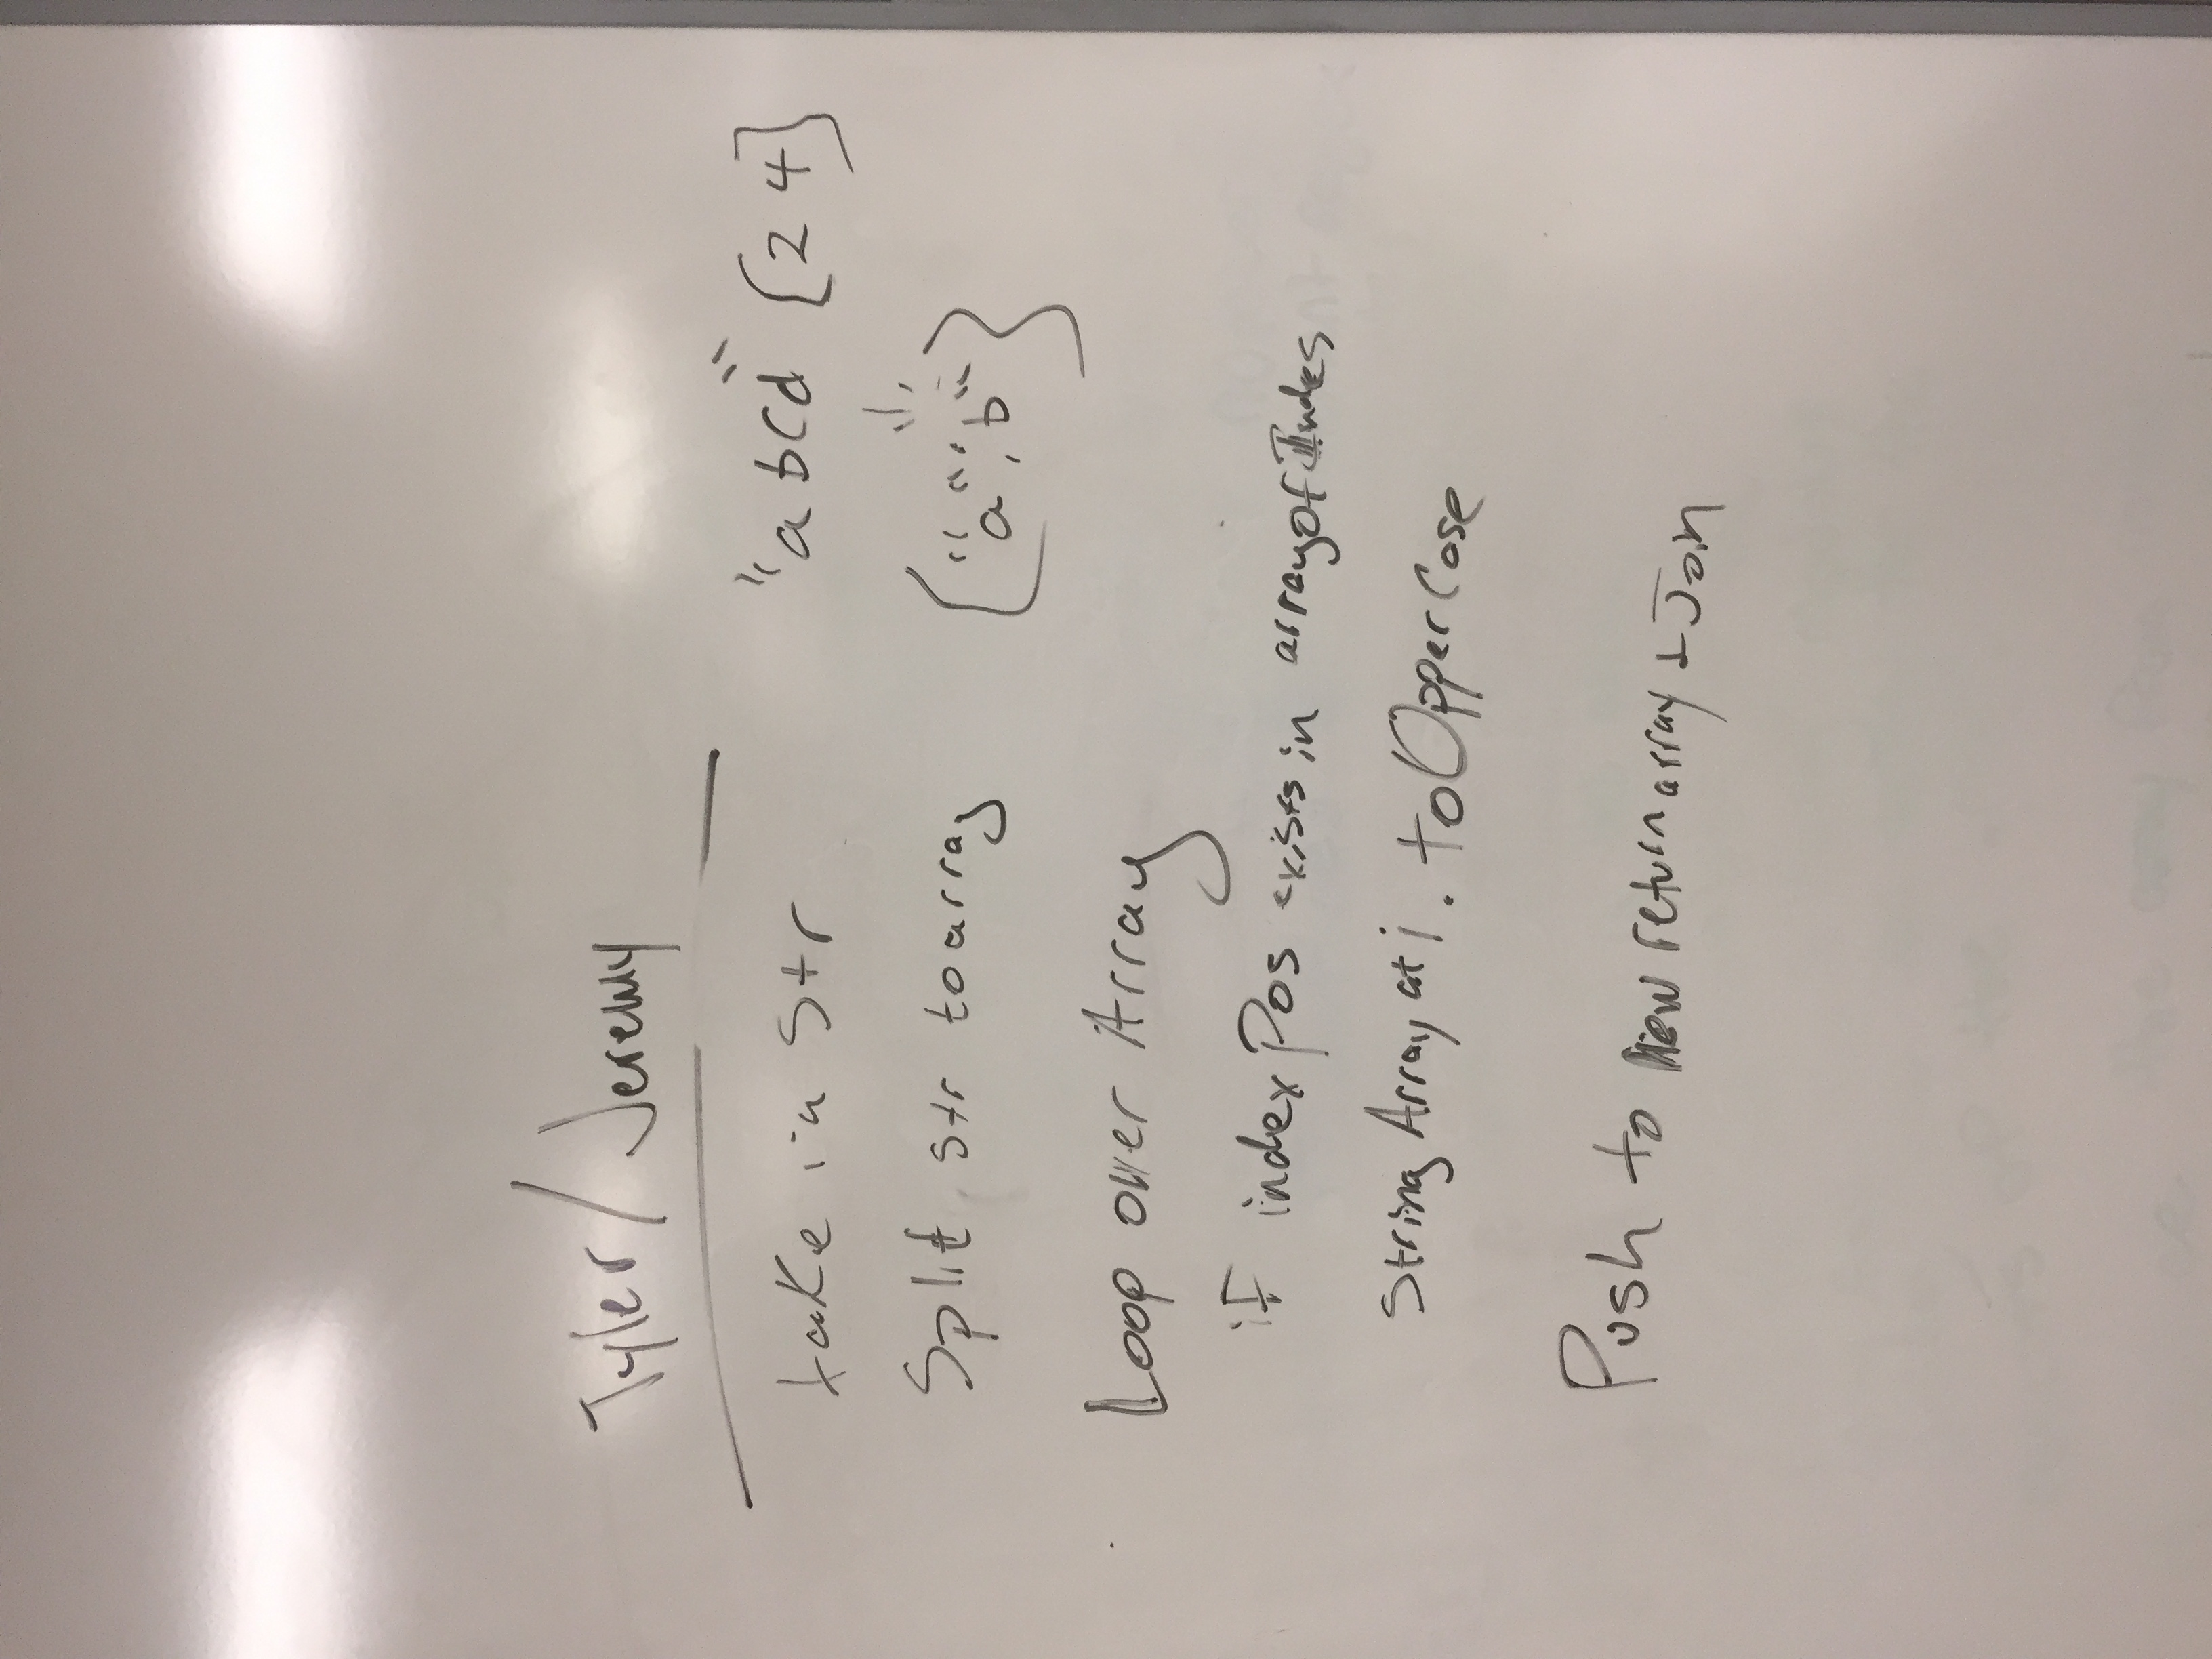 Tyler/Jeremy
take in Str
"abcd" [2 4]
Split str to array
["a", "b"]
Loop over Array
if index Pos exists in array of Indes
String Array at i. to Opper Case
Push to New return array + Join